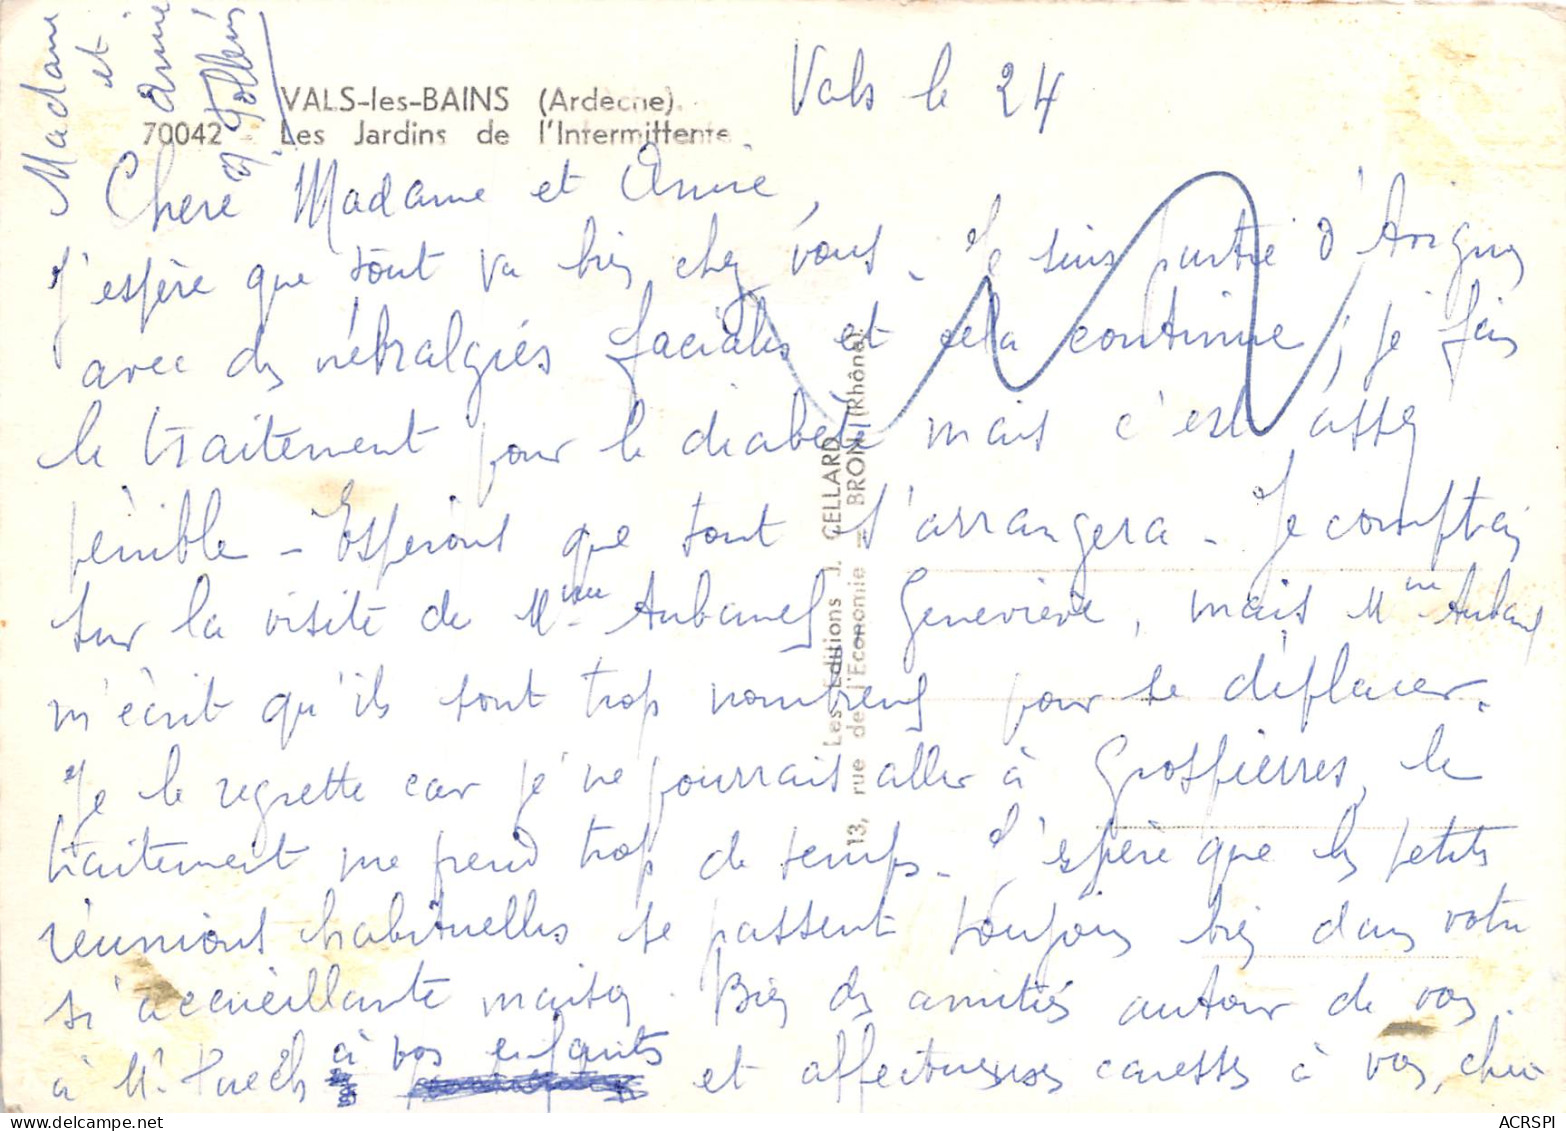 VALS-les-BAINS (Ardèche).
70042 Les Jardins de l'Intermittente
Vals le 24
Chère Madame et Annie,
J'espère que tout va bien chez vous. Je suis partie d'Avignon
avec des névralgies faciales et cela continue ; je fais
le traitement pour le diabète mais c'est assez
pénible - Espérons que tout s'arrangera. Je comptais
sur la visite de Mme Aubanel Geneviève, mais Mme Aubanel
m'écrit qu'ils sont trop nombreux pour se déplacer.
Je le regrette car je ne pourrais aller à Grospierres, le
traitement me prend trop de temps. J'espère que les petites
réunions habituelles se passent toujours bien dans votre
si accueillante maison. Bien des amitiés autour de vous.
à Mr Puech à vos enfants et affectueuses caresses à vous, chère
Madame
et
Annie
Les Editions J. CELLARD
13, rue de l'Economie = BRON (Rhône).
ACRSPI